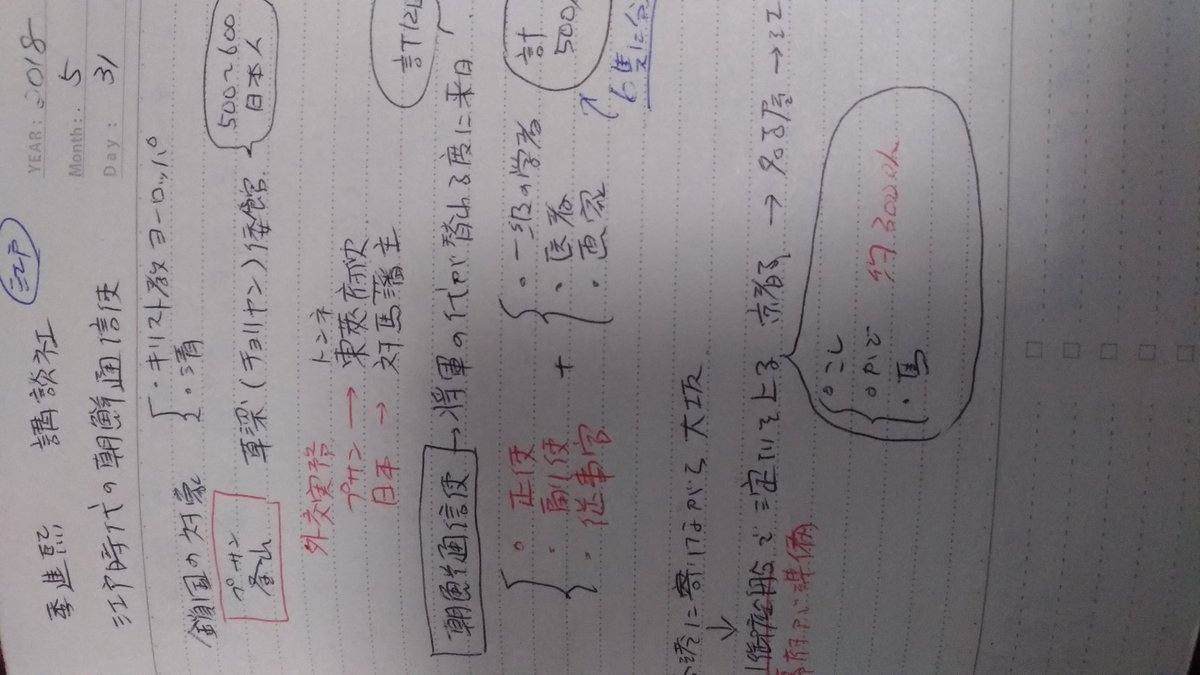 YEAR: 2018
Month: 5
Day: 31
江戸
李進熙 講談社
江戸時代の朝鮮通信使
鎖国の対象 ・キリスト教ヨーロッパ
・清
プサン 草梁(チョリヤン)倭館 500~600
日本人
外交実務 トンネ
プサン → 東萊府使
日本 → 対馬藩主
計12
朝鮮通信使 → 将軍の代が替わる度に来日
・正使 ・一級の学者 計
・副使 + ・医者 500人
・従事官 ・画家
6隻に分
港に寄りながら大坂
↓
川御座船で淀川を上る 京都 → 名古屋 → 江
幕府が準備
・こし
・かご 約3000人
・馬